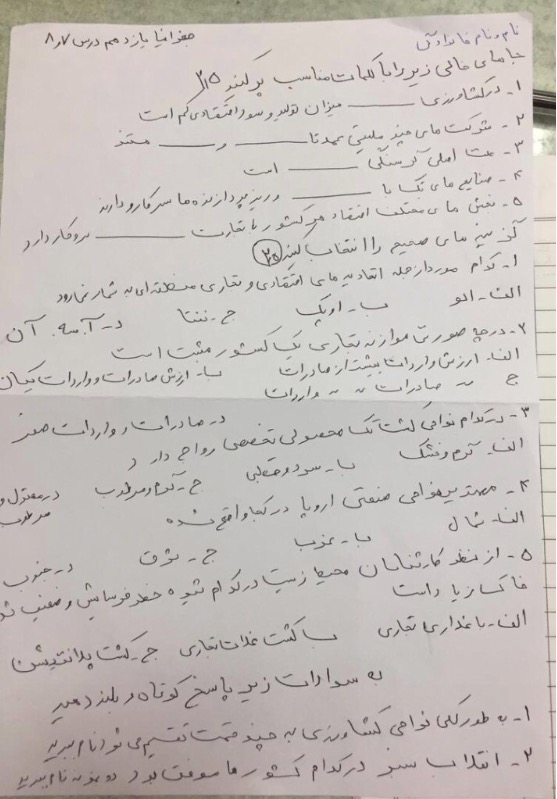 نام و نام خانوادگی
جغرافیا یازدهم درس ۷ و ۸
جاهای خالی زیر را با کلمات مناسب پر کنید ۲/۵
۱- در کشاورزی ــــــ میزان تولید و سود اقتصادی کم است
۲- شرکت های چند ملیتی عمدتا ــــــ و ــــــ هستند
۳- علت اصلی گرسنگی ــــــ است
۴- صنایع های تک با ــــــ و ریزپردازنده ها سر کار دارند
۵- نقش های مختلف اقتصاد هر کشور با تجارت ــــــ سروکار دارد
گزینه های صحیح را انتخاب کنید ۲/۵
۱- کدام مورد از جمله اتحادیه های اقتصادی و تجاری منطقه ای به شمار نمی رود
الف- اکو ب- اوپک ج- نفتا د- آ.سه.آن
۲- در چه صورت موازنه تجاری یک کشور مثبت است
الف- ارزش واردات بیشتر از صادرات ب- ارزش صادرات و واردات یکسان
ج- " صادرات " " واردات
د- صادرات و واردات صفر
۳- در کدام نواحی کشت تک محصولی تخصصی رواج دارد
الف- گرم و خشک ب- سرد و قطبی ج- گرم و مرطوب د- معتدل و مرطوب
۴- مهمترین نواحی صنعتی اروپا در کجا واقع شده
الف- شمال ب- غرب ج- شرق د- جنوب
۵- از منظر کارشناسان محیط زیست در کدام شیوه خطر فرسایش و تضعیف
خاک زیاد است
الف- باغداری تجاری ب- کشت غلات تجاری ج- کشت پلانتیشن
به سوالات زیر پاسخ کوتاه و بلند دهید
۱- به طور کلی نواحی کشاورزی به چند قسمت تقسیم می شود نام ببرید
۲- انقلاب سبز در کدام کشور ها موفقت بود دو نمونه نام ببرید